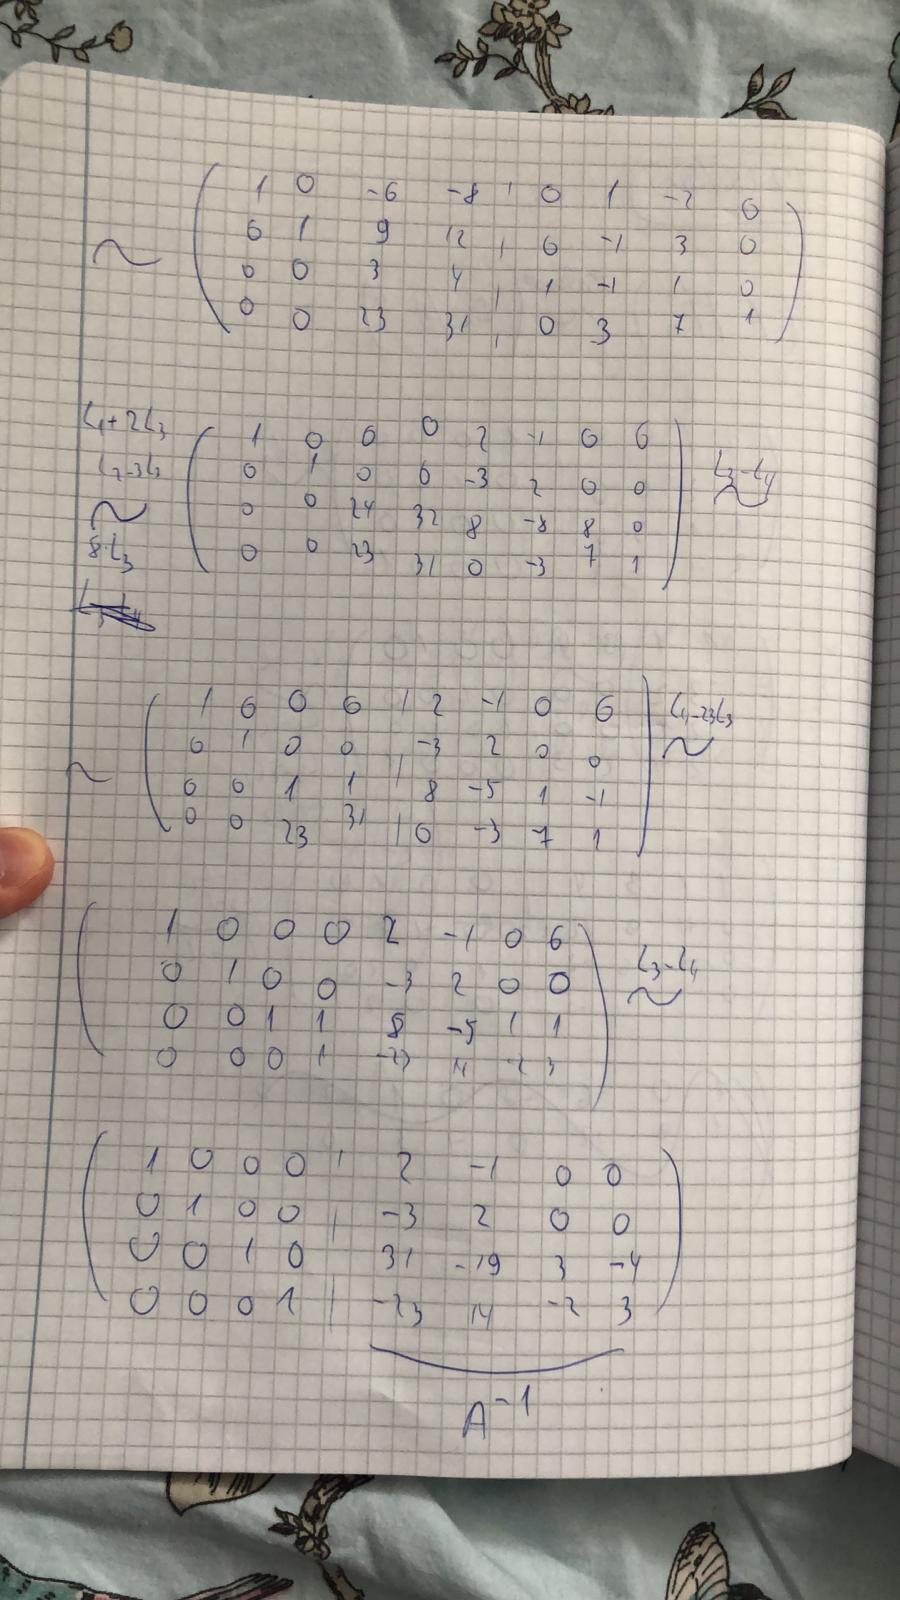 ~ ( 1 0 -6 -8 | 0 1 -2 0
0 1 9 12 | 0 -1 3 0
0 0 3 4 | 1 -1 1 0
0 0 23 31 | 0 3 7 1 )
L1+2L3
L2-3L3
~
8·L3
( 1 0 0 0 2 -1 0 0
0 1 0 0 -3 2 0 0
0 0 24 32 8 -8 8 0
0 0 23 31 0 -3 7 1 ) L3-L4 ~
~ ( 1 0 0 0 | 2 -1 0 0
0 1 0 0 | -3 2 0 0
0 0 1 1 | 8 -5 1 -1
0 0 23 31 | 0 -3 7 1 ) L4-23L3 ~
( 1 0 0 0 2 -1 0 0
0 1 0 0 -3 2 0 0
0 0 1 1 8 -5 1 1
0 0 0 1 -23 14 -2 3 ) L3-L4 ~
( 1 0 0 0 | 2 -1 0 0
0 1 0 0 | -3 2 0 0
0 0 1 0 31 -19 3 -4
0 0 0 1 | -23 14 -2 3 )
A⁻¹